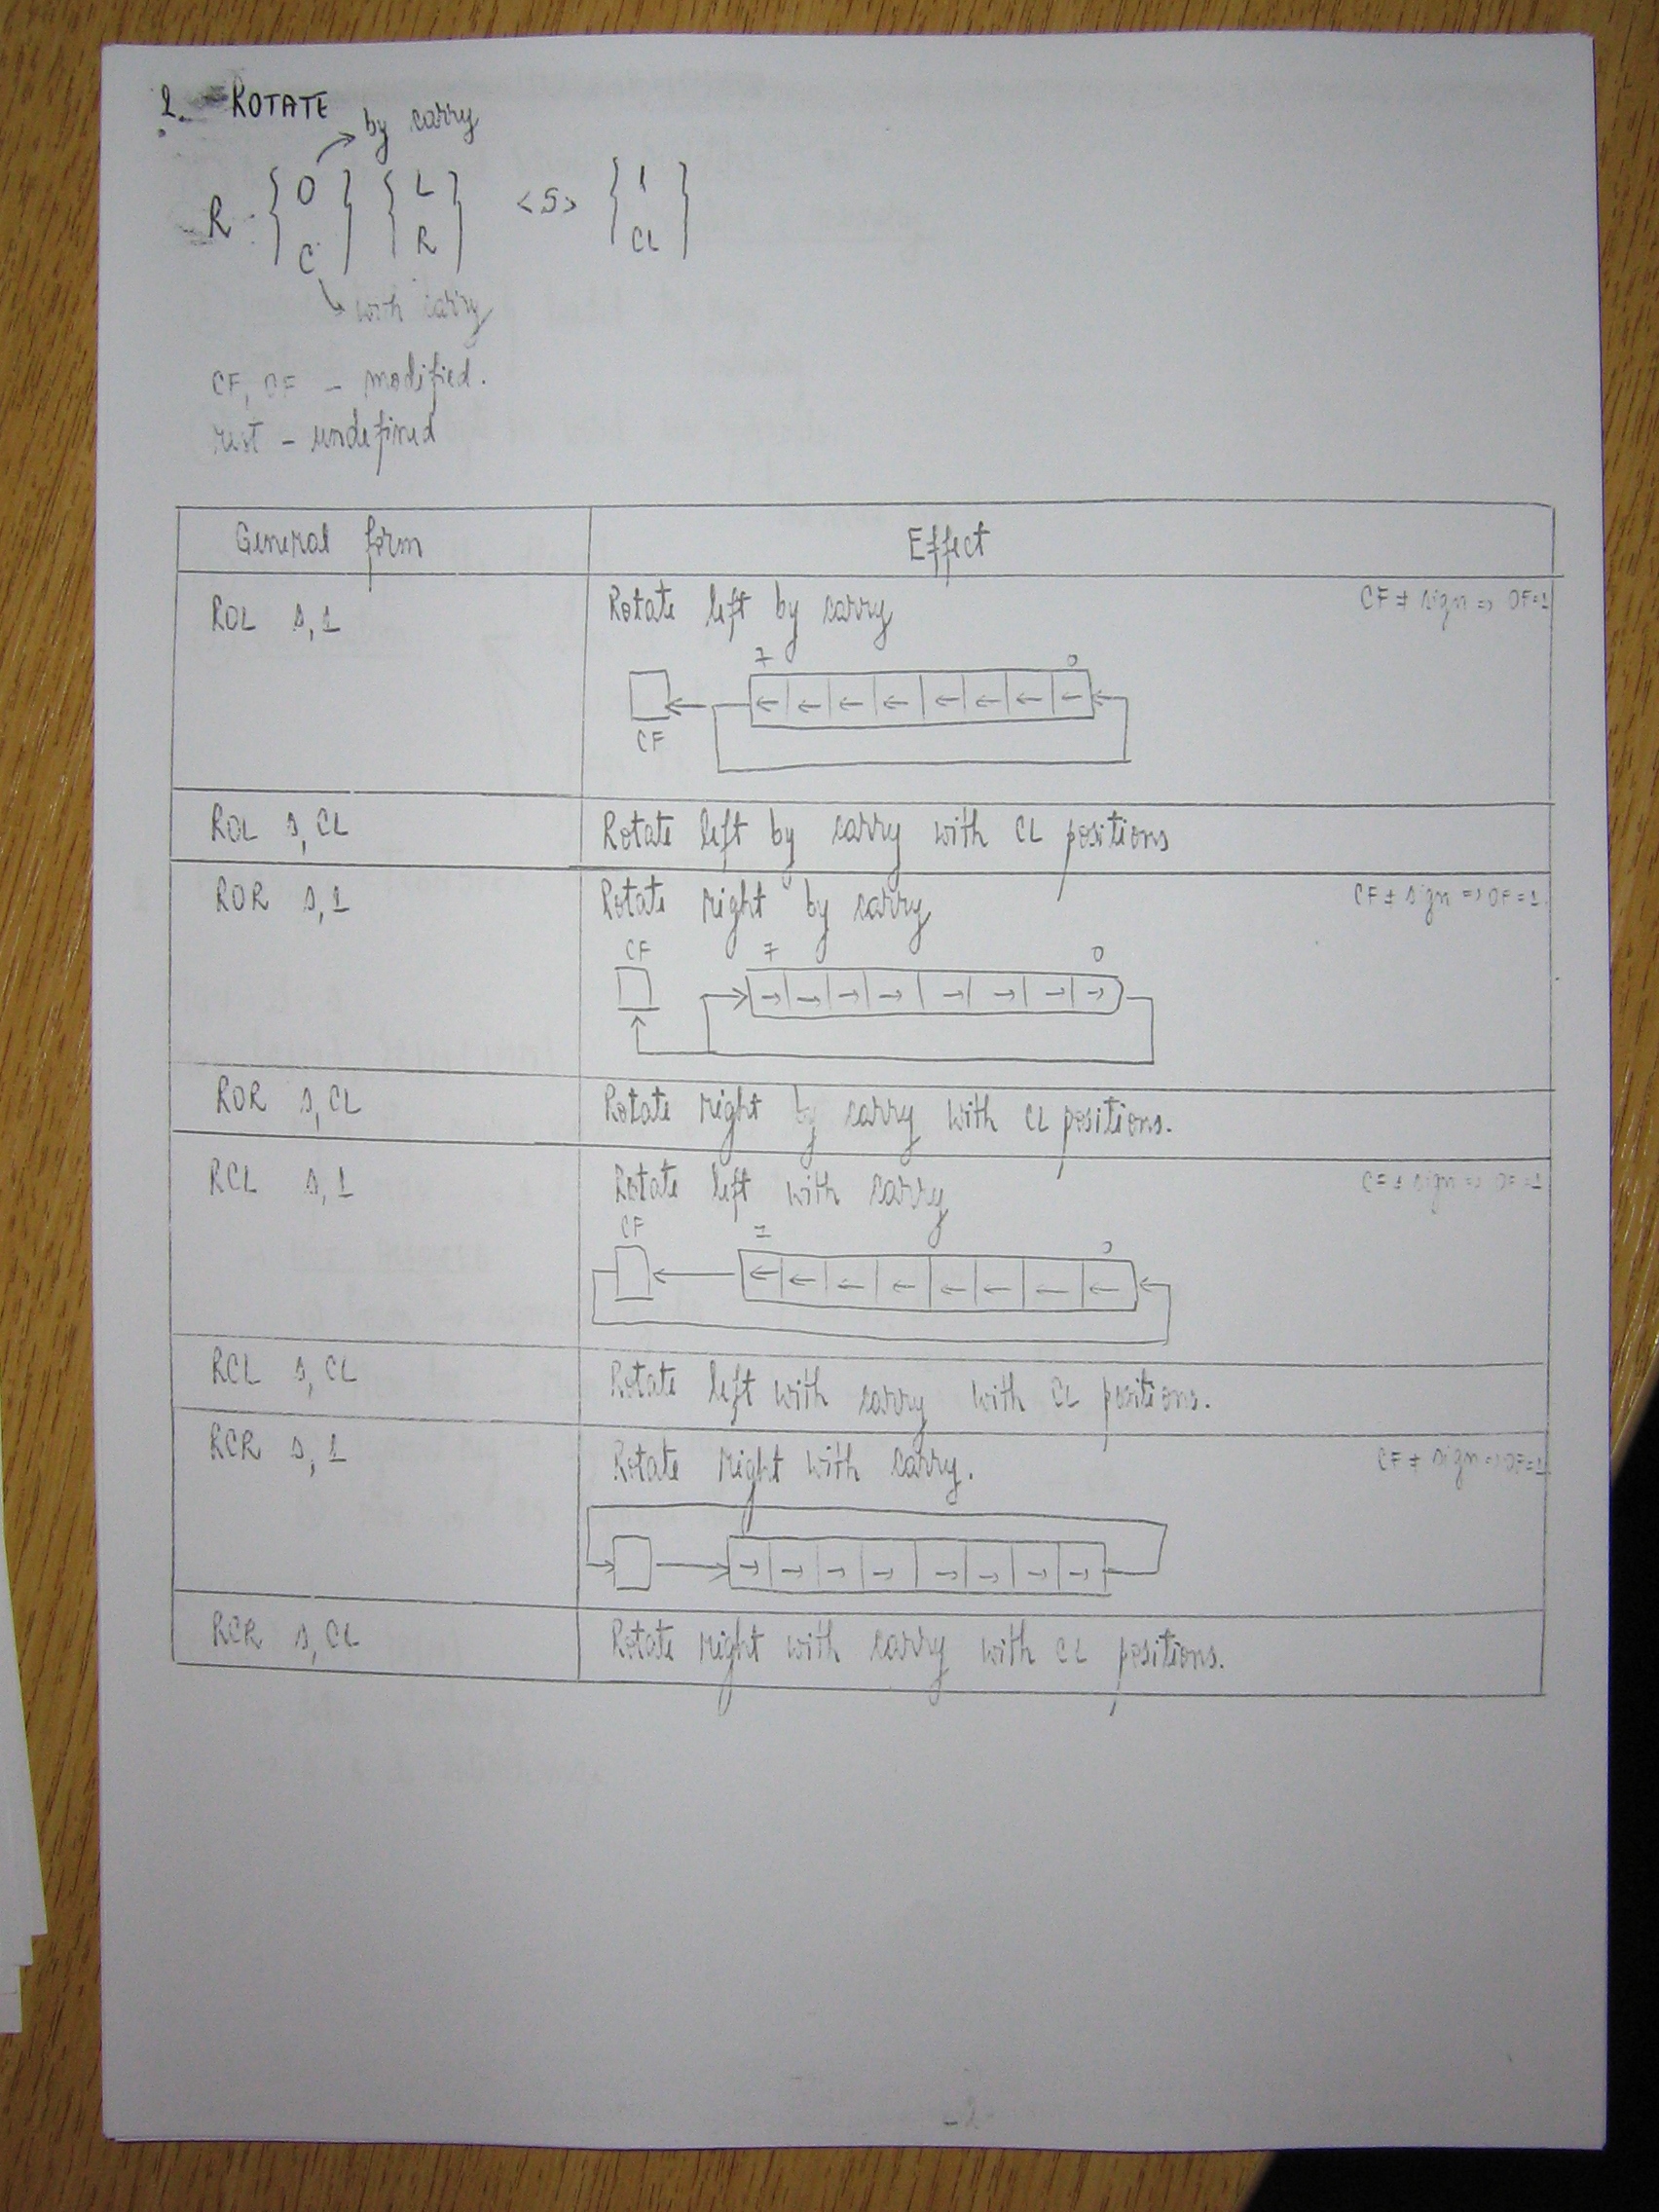 2. ROTATE
by carry
R { O } { L } <S> { 1 }
C R CL
with carry
CF, OF - modified.
rest - undefined
General form Effect
ROL s,1 Rotate left by carry CF ≠ sign => OF=1
7 0
CF
ROL s,CL Rotate left by carry with CL positions
ROR s,1 Rotate right by carry CF ≠ sign => OF=1.
CF 7 0
ROR s,CL Rotate right by carry with CL positions.
RCL s,1 Rotate left with carry CF ≠ sign => OF=1
CF 7 0
RCL s,CL Rotate left with carry with CL positions.
RCR s,1 Rotate right with carry. CF ≠ sign => OF=1
RCR s,CL Rotate right with carry with CL positions.